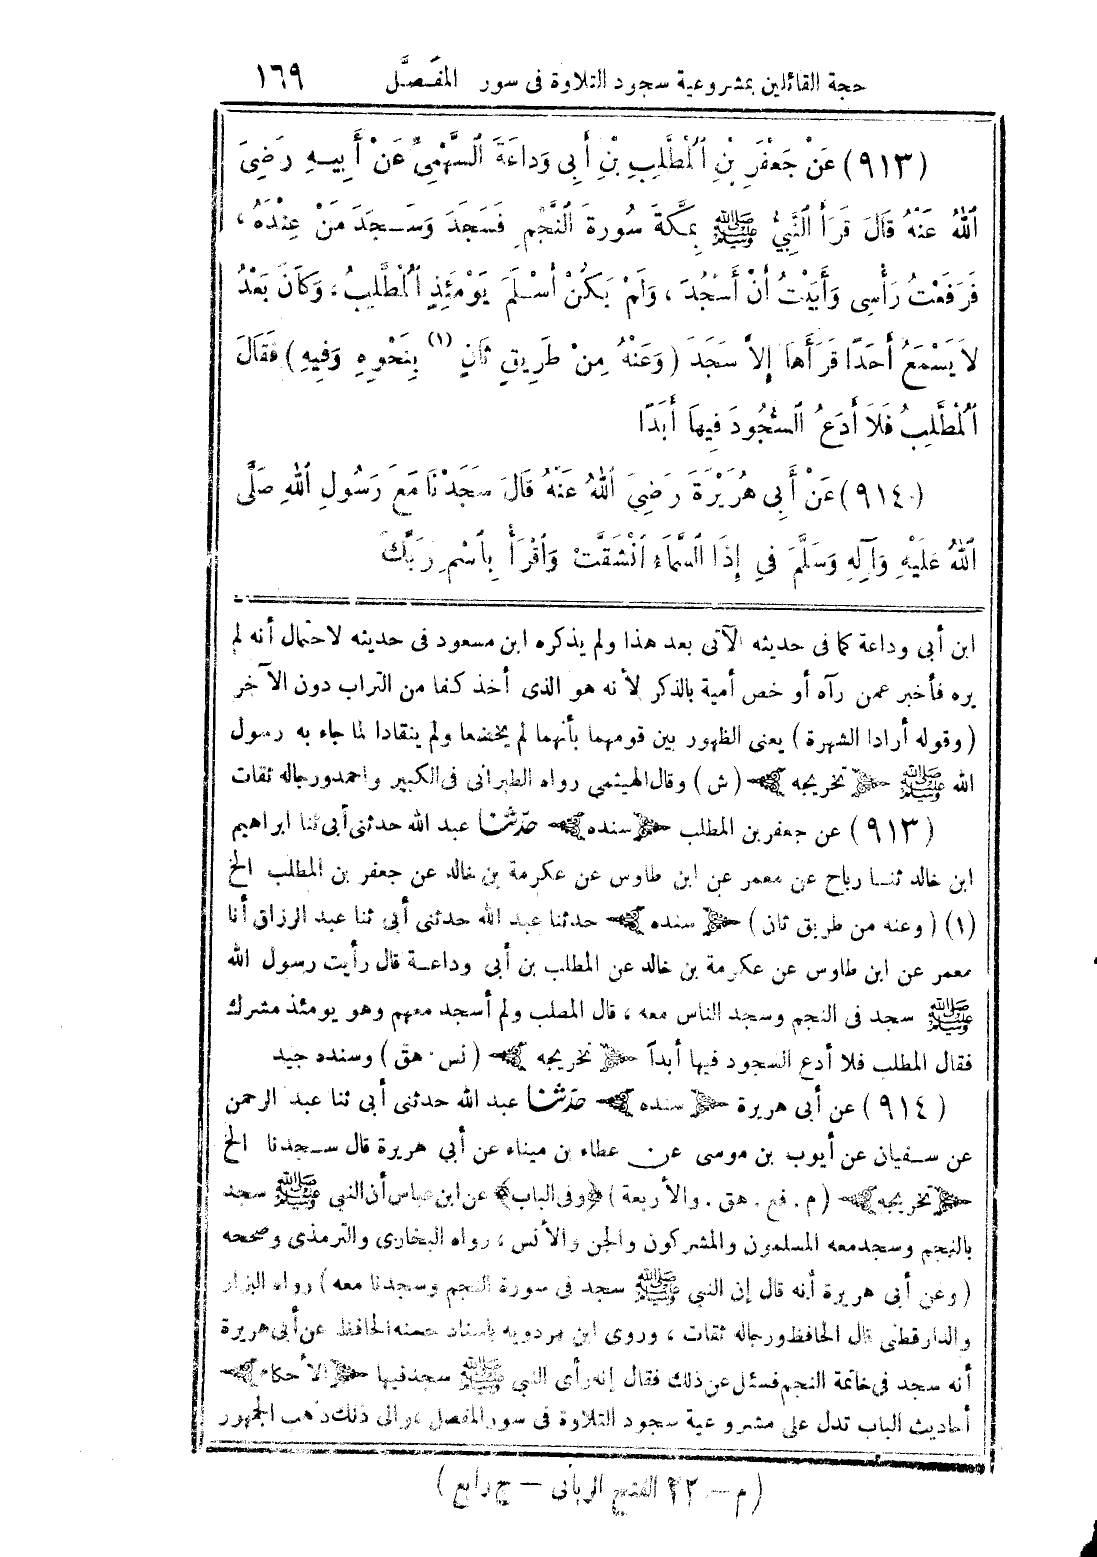 حجة القائلين بمشروعية سجود التلاوة فى سور المفصَّل ١٦٩
(٩١٣) عَنْ جَعْفَرَ بْنِ ٱلْمُطَّلِبِ بْنِ أَبِى وَدَاعَةَ ٱلسَّهْمِىِّ عَنْ أَبِيهِ رَضِىَ
ٱللهُ عَنْهُ قَالَ قَرَأَ ٱلنَّبِىُّ ﷺ بِمَكَّةَ سُورَةَ ٱلنَّجْمِ فَسَجَدَ وَسَجَدَ مَنْ عِنْدَهُ ،
فَرَفَعْتُ رَأْسِى وَأَبَيْتُ أَنْ أَسْجُدَ ، وَلَمْ يَكُنْ أَسْلَمَ يَوْمَئِذٍ ٱلْمُطَّلِبُ ، وَكَانَ بَعْدُ
لاَ يَسْمَعُ أَحَدًا قَرَأَهَا إِلاَّ سَجَدَ (وَعَنْهُ مِنْ طَرِيقٍ ثَانٍ (١) بِنَحْوِهِ وَفِيهِ) فَقَالَ
ٱلْمُطَّلِبُ فَلاَ أَدَعُ ٱلسُّجُودَ فِيهَا أَبَدًا
(٩١٤) عَنْ أَبِى هُرَيْرَةَ رَضِىَ ٱللهُ عَنْهُ قَالَ سَجَدْنَا مَعَ رَسُولِ ٱللهِ صَلَّى
ٱللهُ عَلَيْهِ وَآلِهِ وَسَلَّمَ فِى إِذَا ٱلسَّمَاءُ ٱنْشَقَّتْ وَٱقْرَأْ بِٱسْمِ رَبِّكَ
ابن أبى وداعة كما فى حديثه الآتى بعد هذا ولم يذكره ابن مسعود فى حديثه لاحتمال أنه لم
يره فأخبر عمن رآه أو خص أمية بالذكر لأنه هو الذى أخذ كفا من التراب دون الآخر
(وقوله أرادا الشهرة) يعنى الظهور بين قومهما بأنهما لم يخضعا ولم ينقادا لما جاء به رسول
الله ﷺ ﴿تخريجه﴾ (ش) وقال الهيثمى رواه الطبرانى فى الكبير واحمد ورجاله ثقات
(٩١٣) عن جعفر بن المطلب ﴿سنده﴾ حدّثنا عبد الله حدثنى أبى ثنا ابراهيم
ابن خالد ثنا رباح عن معمر عن ابن طاوس عن عكرمة بن خالد عن جعفر بن المطلب الخ
(١) (وعنه من طريق ثان) ﴿سنده﴾ حدثنا عبد الله حدثنى أبى ثنا عبد الرزاق أنا
معمر عن ابن طاوس عن عكرمة بن خالد عن المطلب بن أبى وداعة قال رأيت رسول الله
ﷺ سجد فى النجم وسجد الناس معه ، قال المطلب ولم أسجد معهم وهو يومئذ مشرك
فقال المطلب فلا أدع السجود فيها أبداً ﴿تخريجه﴾ (نس . هق) وسنده جيد
(٩١٤) عن أبى هريرة ﴿سنده﴾ حدّثنا عبد الله حدثنى أبى ثنا عبد الرحمن
عن سفيان عن أيوب بن موسى عن عطاء بن ميناء عن أبى هريرة قال سجدنا الخ
﴿تخريجه﴾ (م . فع . هق . والأربعة) ﴿وفى الباب﴾ عن ابن عباس أن النبى ﷺ سجد
بالنجم وسجد معه المسلمون والمشركون والجن والأنس ، رواه البخارى والترمذى وصححه
(وعن أبى هريرة أنه قال إن النبى ﷺ سجد فى سورة النجم وسجدنا معه) رواه البزار
والدارقطنى قال الحافظ ورجاله ثقات ، وروى ابن مردويه باسناد حسنه الحافظ عن أبى هريرة
أنه سجد فى خاتمة النجم فسئل عن ذلك فقال إنه رأى النبى ﷺ سجد فيها ﴿الأحكام﴾
أحاديث الباب تدل على مشروعية سجود التلاوة فى سور المفصل ، والى ذلك ذهب الجمهور
(م – ٢٢ الفتح الربانى – ج رابع)